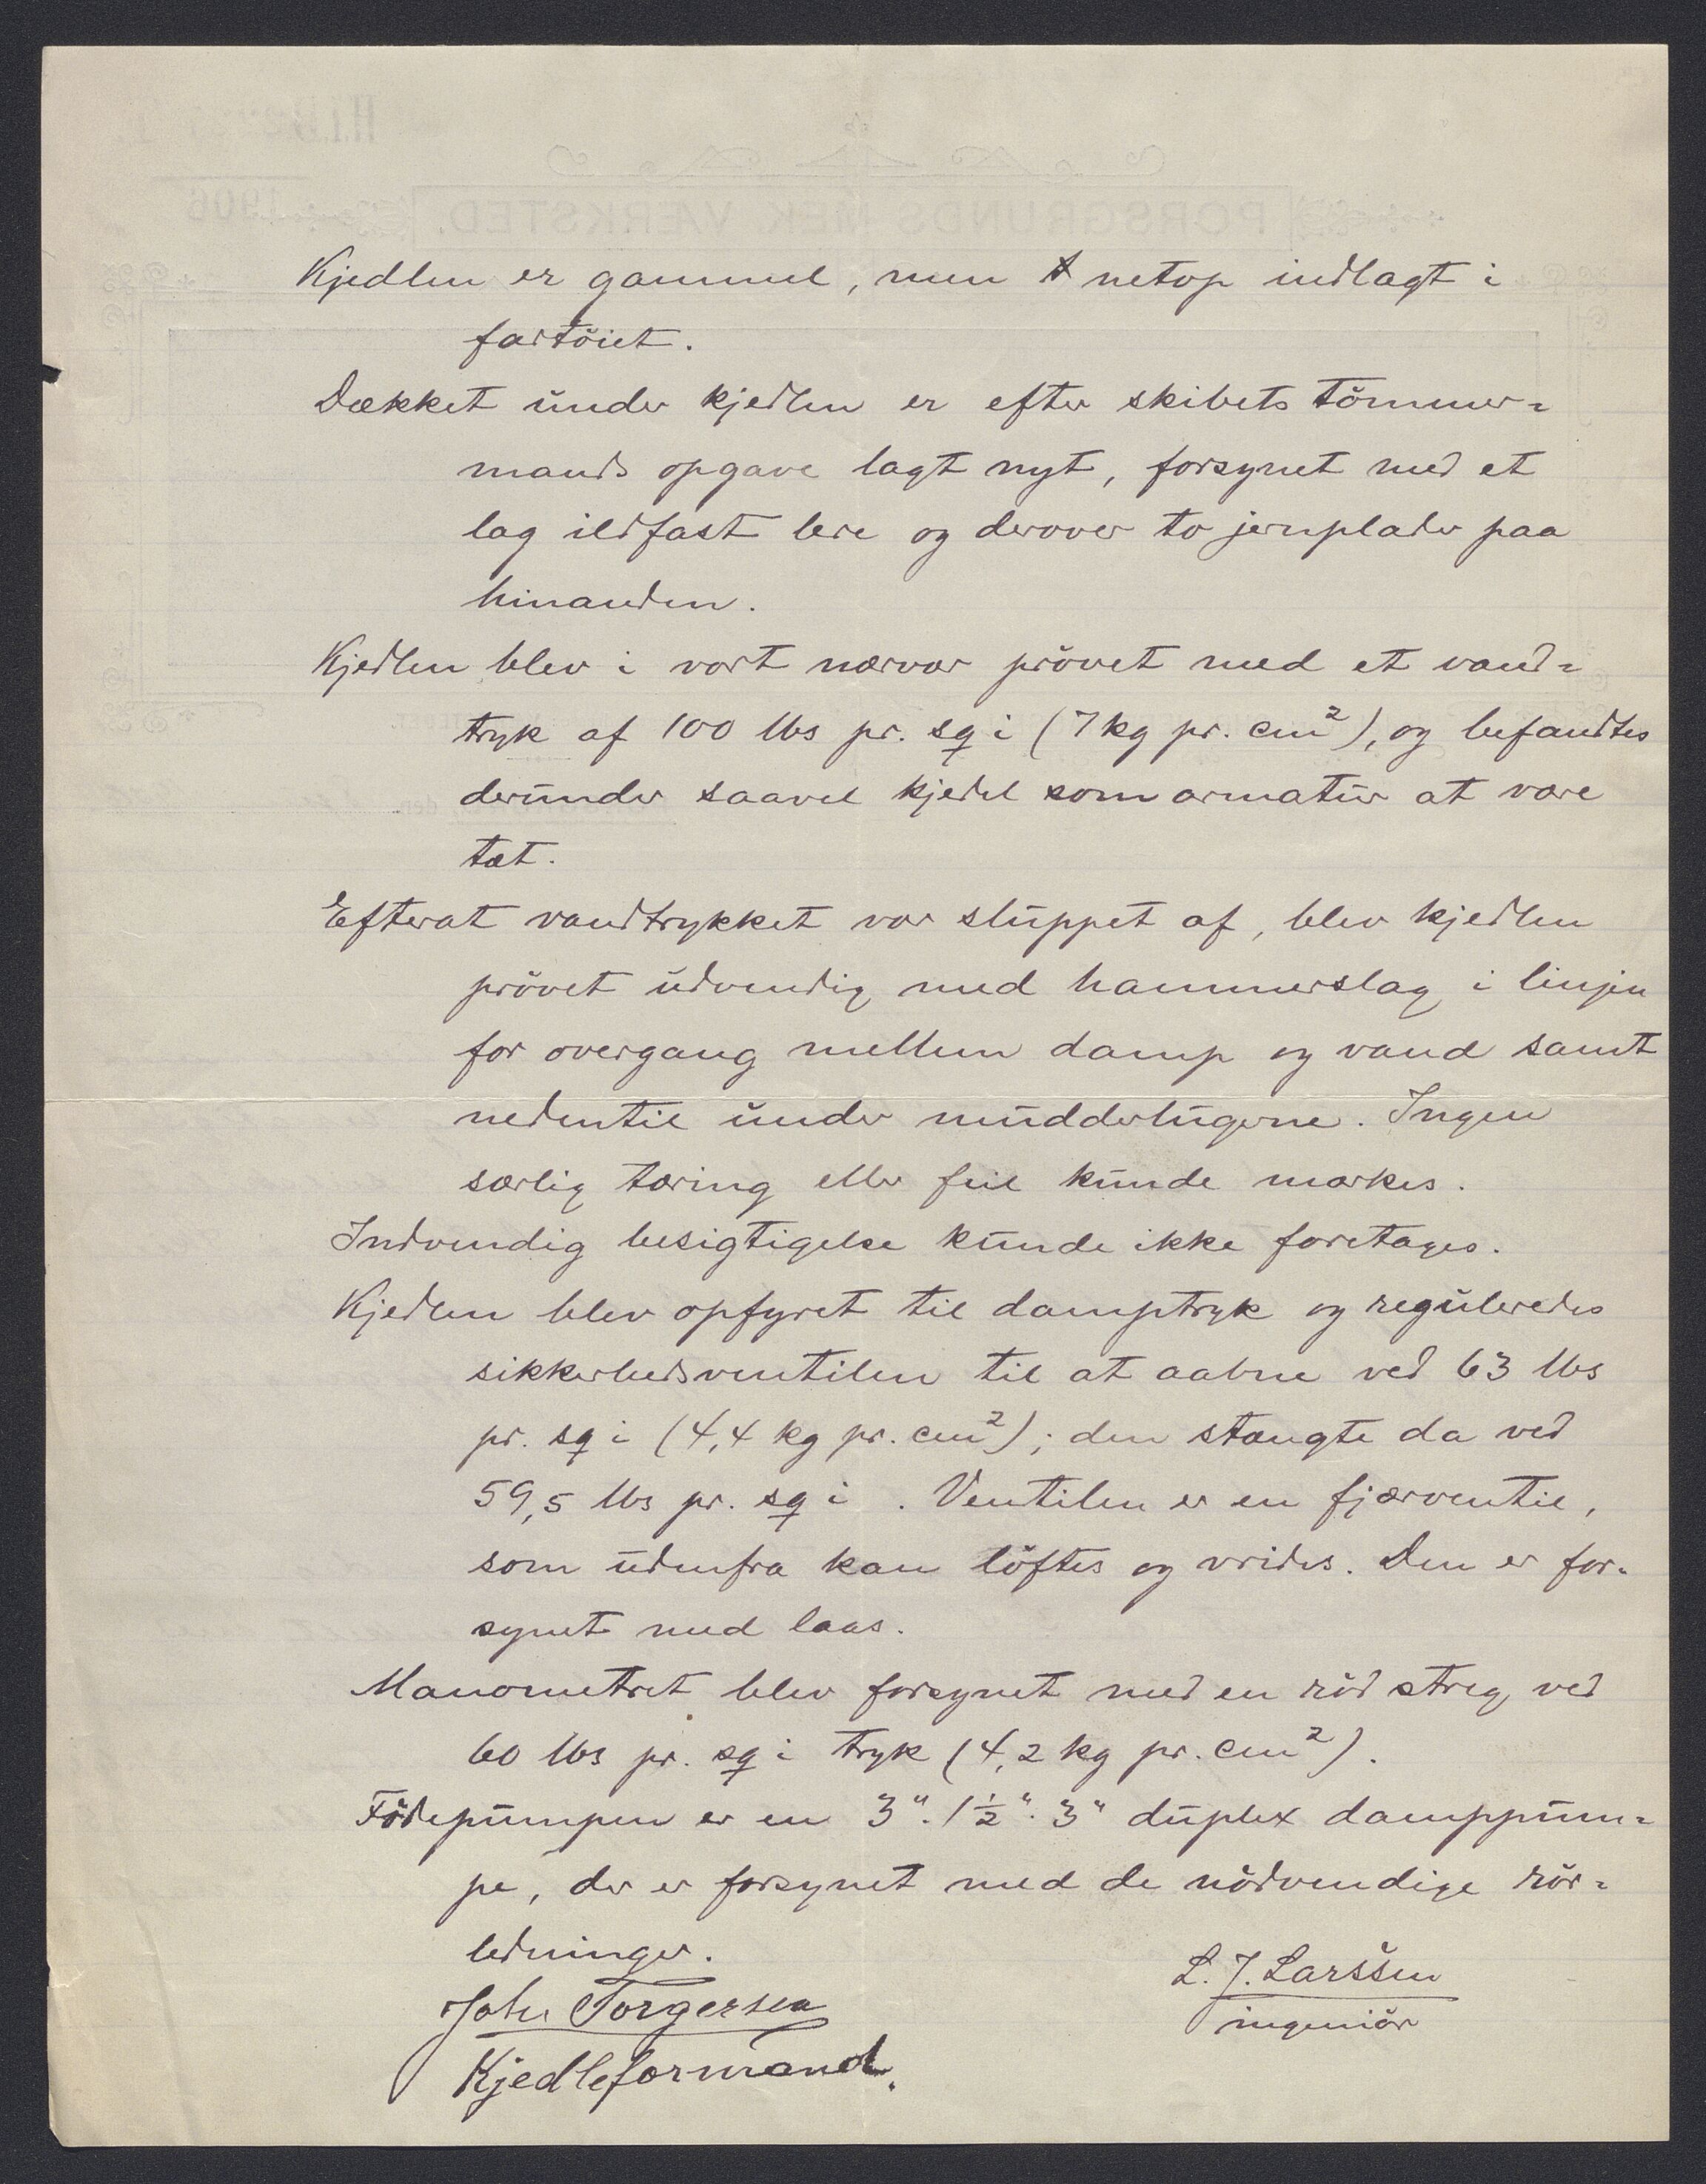 Kjedlen er gammel, men netop indlagt i
fartöiet.
Dækket under kjedlen er efter skibets tömmer-
mands opgave lagt nyt, forsynet med et
lag ildfast lere og derover to jernplader paa
hinanden.
Kjedlen blev i vort nærvær prövet med et vand-
tryk af 100 lbs pr. sq i (7 kg pr. cm²), og befandtes
derunder saavel kjedel som armatur at være
tæt.
Efterat vandtrykket var sluppet af, blev kjedlen
prövet udvendig med hammerslag i linjen
for overgang mellem damp og vand samt
nedentil under mudderlugerne. Ingen
særlig tæring eller feil kunde mærkes.
Indvendig besigtigelse kunde ikke foretages.
Kjedlen blev opfyret til damptryk og reguleredes
sikkerhedsventilen til at aabne ved 63 lbs
pr. sq i (4,4 kg pr. cm²); den stængte da ved
59,5 lbs pr. sq i . Ventilen er en fjærventil,
som udenfra kan löftes og vrides. Den er for-
synet med laas.
Manometret blev forsynet med en röd streg ved
60 lbs pr. sq i tryk (4,2 kg pr. cm²).
Födepumpen er en 3". 1½". 3" duplex damppum-
pe, der er forsynet med de nödvendige rör-
ledninger.
L. J. Larssen
Joh. Torgersen
ingeniör
Kjedleformand.
PORSGRUNDS MEK. VÆRKSTED.
1906